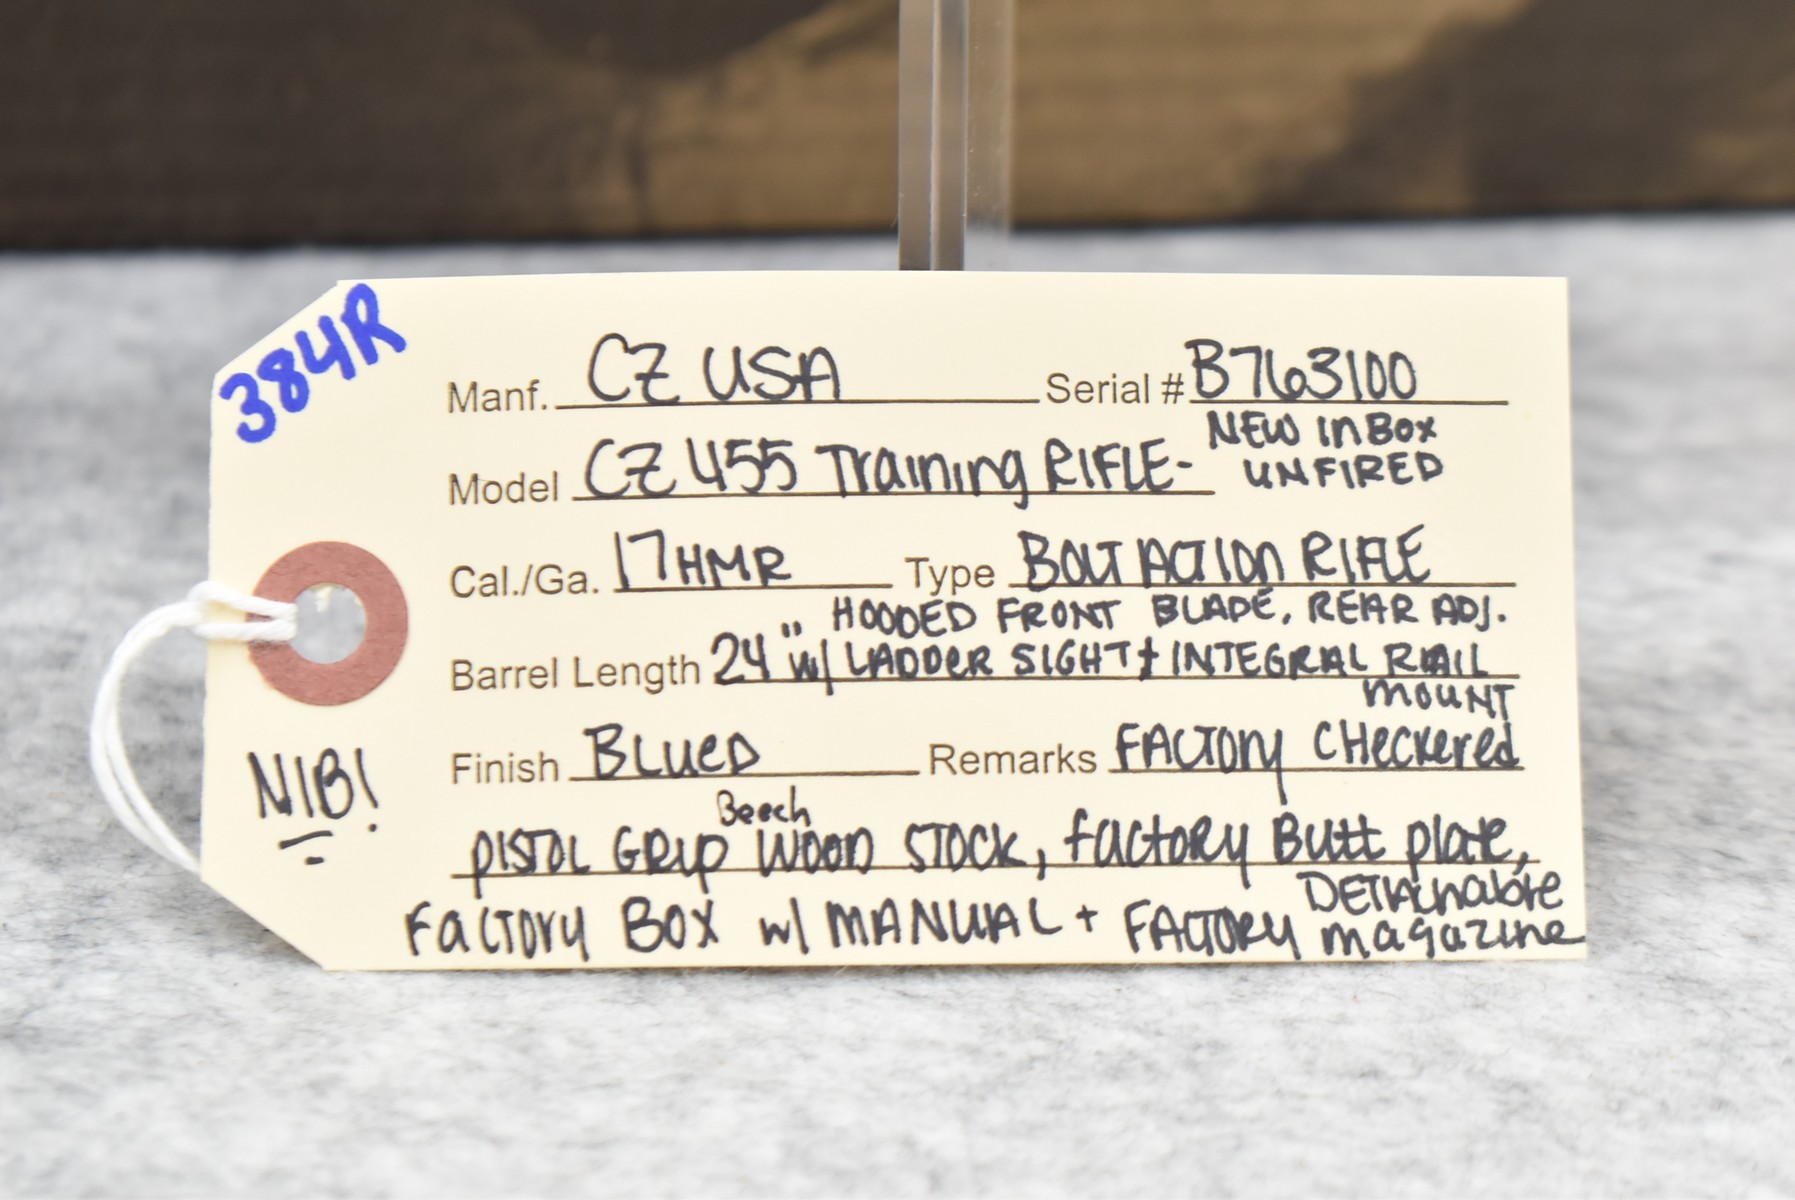 384R
Manf. CZ USA Serial # B763100
Model CZ 455 Training RIFLE- NEW IN BOX
UNFIRED
Cal./Ga. 17HMR Type BOLT ACTION RIFLE
HOODED FRONT BLADE, REAR ADJ.
Barrel Length 24" w/ LADDER SIGHT + INTEGRAL RAIL
MOUNT
Finish BLUED Remarks FACTORY CHECKERED
NIB!
Beech
PISTOL GRIP WOOD STOCK, factory Butt plate,
FACTORY BOX w/ MANUAL + FACTORY DETACHABLE
magazine